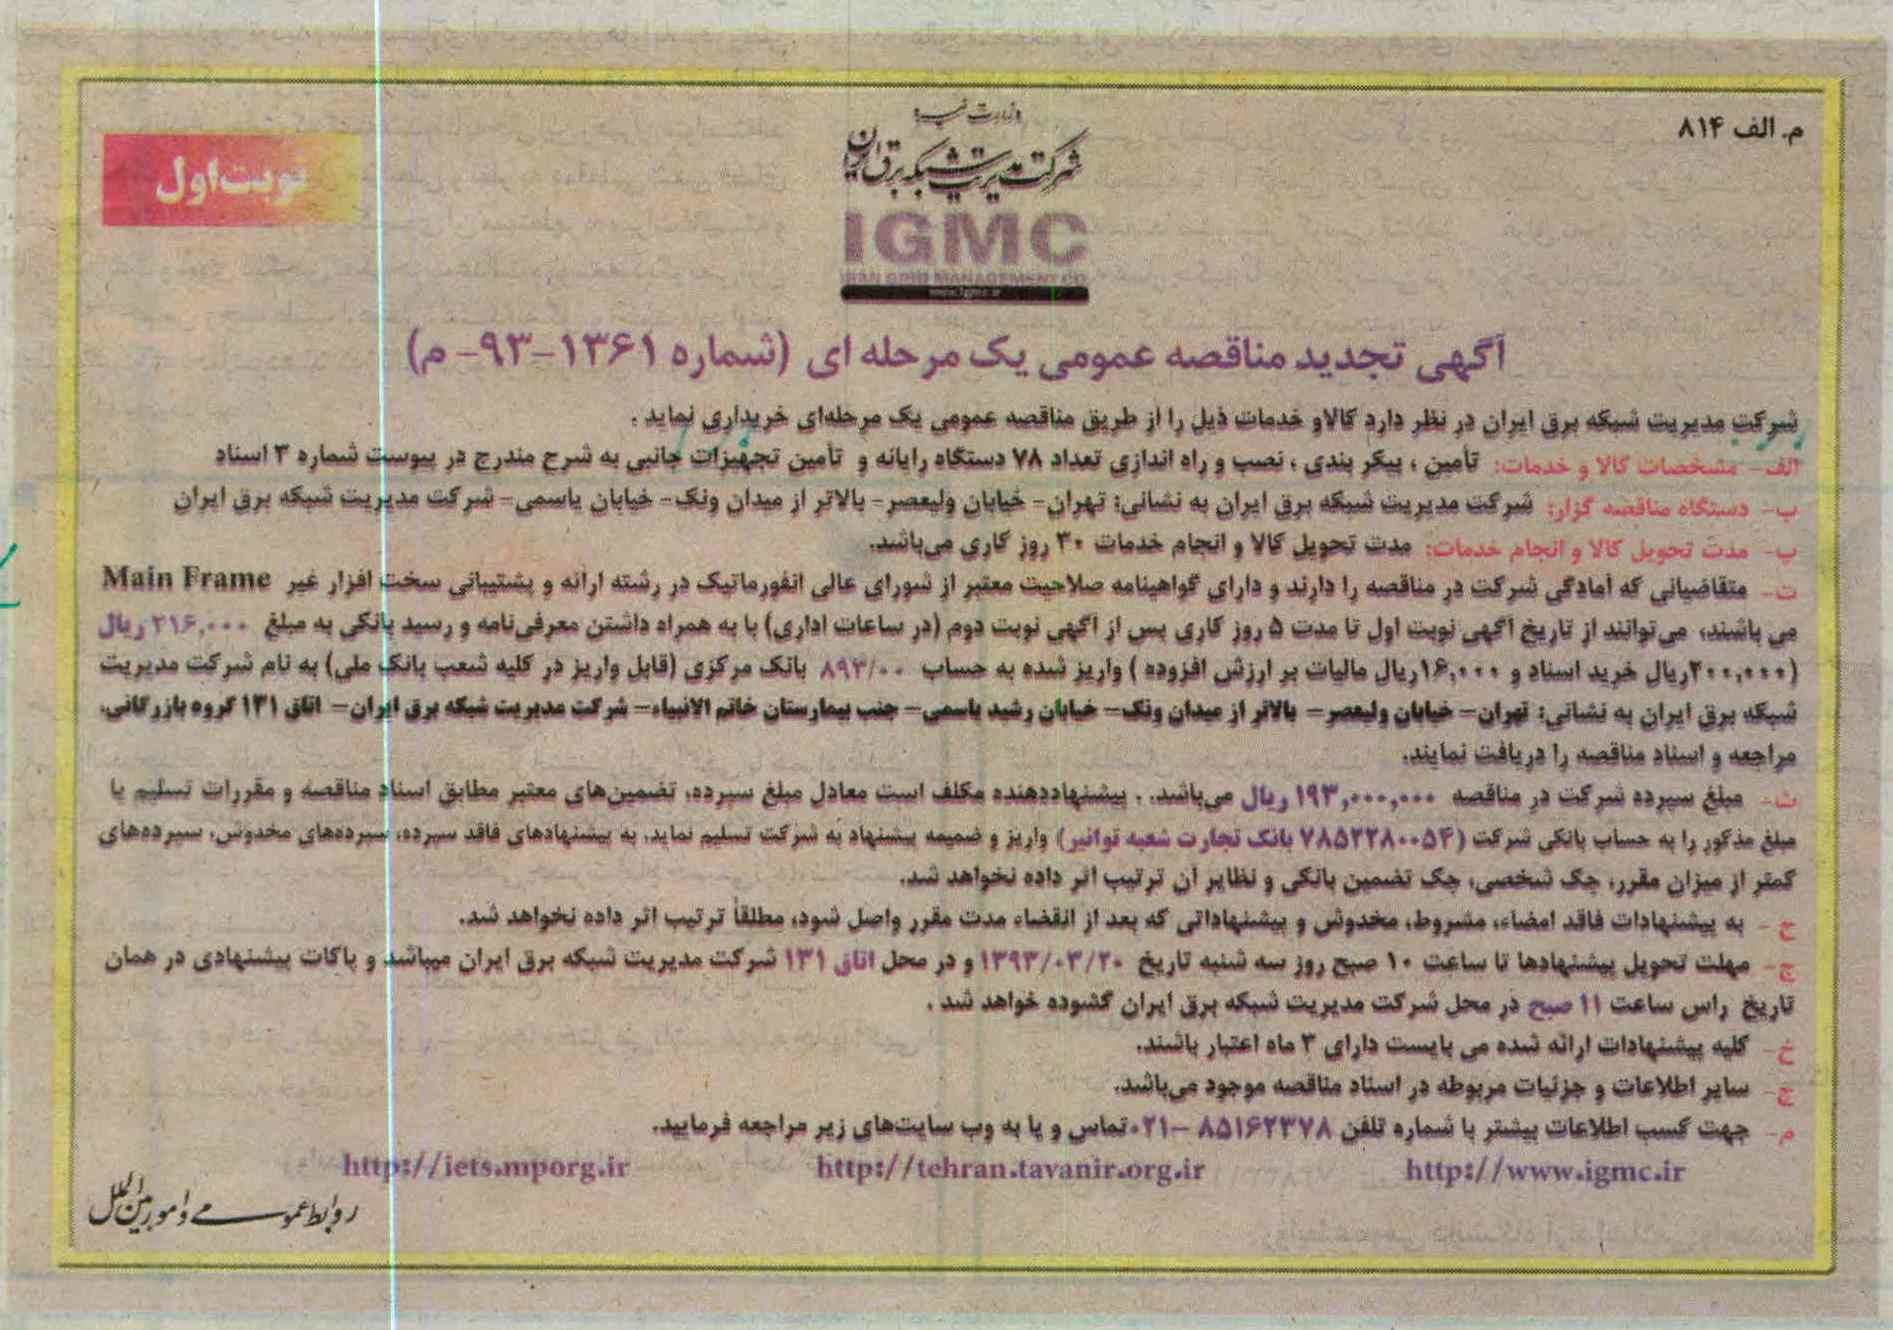 م. الف ۸۱۴
نوبت اول
وزارت نیرو
شرکت مدیریت شبکه برق ایران
IGMC
IRAN GRID MANAGEMENT CO
www.igmc.ir
آگهی تجدید مناقصه عمومی یک مرحله ای (شماره ۱۳۶۱-۹۳- م)
شرکت مدیریت شبکه برق ایران در نظر دارد کالاو خدمات ذیل را از طریق مناقصه عمومی یک مرحله‌ای خریداری نماید .
الف- مشخصات کالا و خدمات: تأمین ، پیکر بندی ، نصب و راه اندازی تعداد ۷۸ دستگاه رایانه و تأمین تجهیزات جانبی به شرح مندرج در پیوست شماره ۳ اسناد
ب- دستگاه مناقصه گزار: شرکت مدیریت شبکه برق ایران به نشانی: تهران- خیابان ولیعصر- بالاتر از میدان ونک- خیابان یاسمی- شرکت مدیریت شبکه برق ایران
پ- مدت تحویل کالا و انجام خدمات: مدت تحویل کالا و انجام خدمات ۳۰ روز کاری می‌باشد.
ت- متقاضیانی که آمادگی شرکت در مناقصه را دارند و دارای گواهینامه صلاحیت معتبر از شورای عالی انفورماتیک در رشته ارائه و پشتیبانی سخت افزار غیر Main Frame
می باشند، می‌توانند از تاریخ آگهی نوبت اول تا مدت ۵ روز کاری پس از آگهی نوبت دوم (در ساعات اداری) با به همراه داشتن معرفی‌نامه و رسید بانکی به مبلغ ۲۱۶,۰۰۰ ریال
(۲۰۰,۰۰۰ریال خرید اسناد و ۱۶,۰۰۰ریال مالیات بر ارزش افزوده ) واریز شده به حساب ۸۹۳/۰۰ بانک مرکزی (قابل واریز در کلیه شعب بانک ملی) به نام شرکت مدیریت
شبکه برق ایران به نشانی: تهران- خیابان ولیعصر- بالاتر از میدان ونک- خیابان رشید یاسمی- جنب بیمارستان خاتم الانبیاء- شرکت مدیریت شبکه برق ایران- اتاق ۱۳۱ گروه بازرگانی،
مراجعه و اسناد مناقصه را دریافت نمایند.
ث- مبلغ سپرده شرکت در مناقصه ۱۹۳,۰۰۰,۰۰۰ ریال می‌باشد. . پیشنهاددهنده مکلف است معادل مبلغ سپرده، تضمین‌های معتبر مطابق اسناد مناقصه و مقررات تسلیم یا
مبلغ مذکور را به حساب بانکی شرکت (۷۸۵۲۲۸۰۰۵۴ بانک تجارت شعبه توانیر) واریز و ضمیمه پیشنهاد به شرکت تسلیم نماید. به پیشنهادهای فاقد سپرده، سپرده‌های مخدوش، سپرده‌های
کمتر از میزان مقرر، چک شخصی، چک تضمین بانکی و نظایر آن ترتیب اثر داده نخواهد شد.
ج - به پیشنهادات فاقد امضاء، مشروط، مخدوش و پیشنهاداتی که بعد از انقضاء مدت مقرر واصل شود، مطلقاً ترتیب اثر داده نخواهد شد.
چ- مهلت تحویل پیشنهادها تا ساعت ۱۰ صبح روز سه شنبه تاریخ ۱۳۹۳/۰۳/۲۰ و در محل اتاق ۱۳۱ شرکت مدیریت شبکه برق ایران میباشد و پاکات پیشنهادی در همان
تاریخ راس ساعت ۱۱ صبح در محل شرکت مدیریت شبکه برق ایران گشوده خواهد شد .
خ- کلیه پیشنهادات ارائه شده می بایست دارای ۳ ماه اعتبار باشند.
چ- سایر اطلاعات و جزئیات مربوطه در اسناد مناقصه موجود می‌باشد.
م- جهت کسب اطلاعات بیشتر با شماره تلفن ۸۵۱۶۲۳۷۸ -۰۲۱تماس و یا به وب سایت‌های زیر مراجعه فرمایید.
http://www.igmc.ir http://tehran.tavanir.org.ir http://iets.mporg.ir
روابط عمومی و امور بین الملل